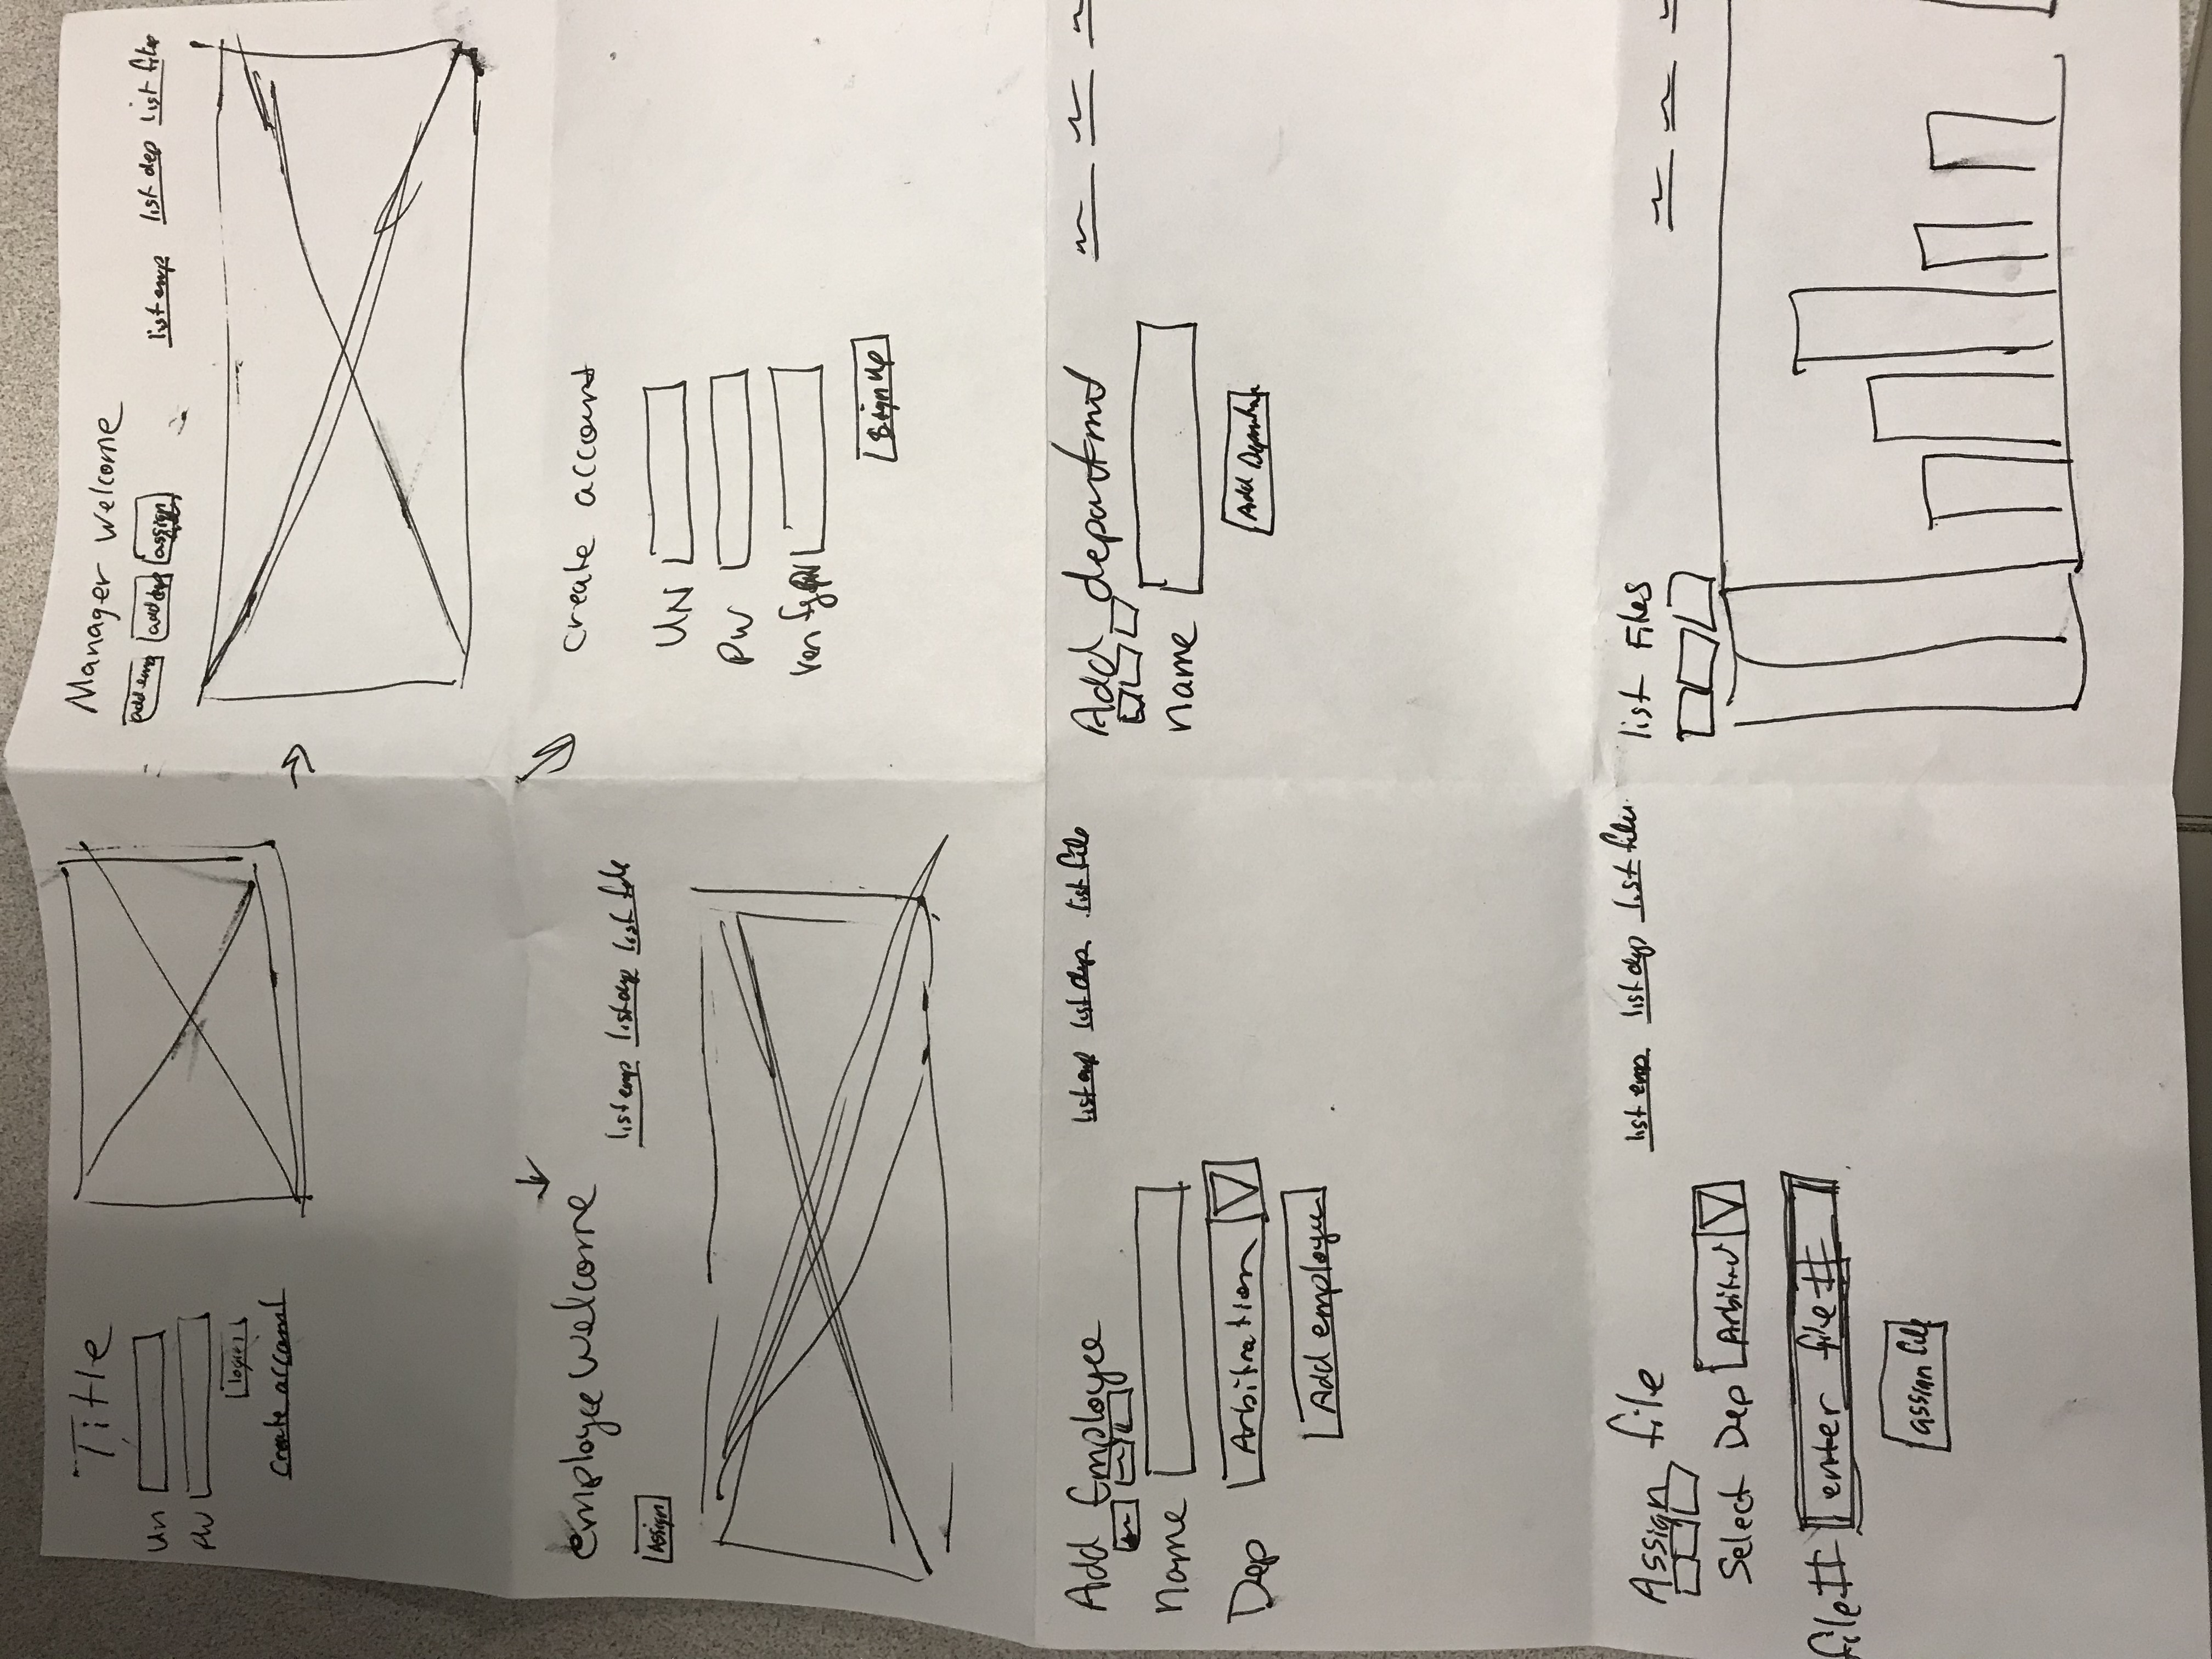 Title
Un
PW
login
Create account
Manager Welcome
add emp add dep assign
list emp list dep list files
employee Welcome
list emp list dep list file
Assign
create account
UN
PW
verify PW
Sign Up
Add Employee
list emp list dep list file
name
Dep Arbitration
Add employee
Add departmnt
name
Add
Assign file
list emp list dep list files
Select Dep
file# enter file#
assign file
list Files